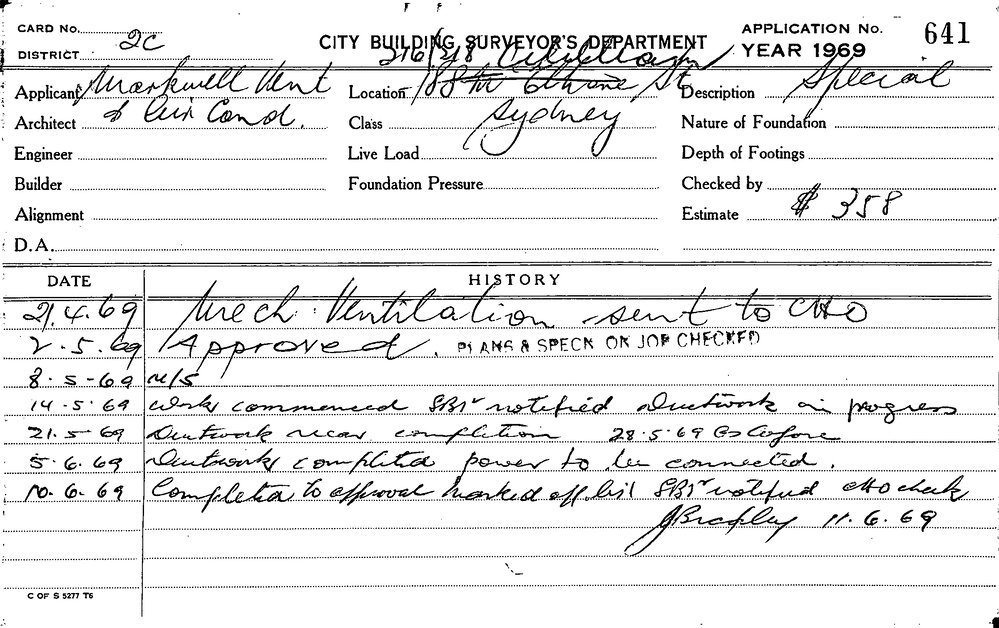 CARD No. CITY BUILDING SURVEYOR'S DEPARTMENT APPLICATION No. 641
DISTRICT 2C YEAR 1969
216/218
Applicant Markwell Vent Location St Description Special
Architect & Air Cond. Class Sydney Nature of Foundation
Engineer Live Load Depth of Footings
Builder Foundation Pressure Checked by
Alignment Estimate $ 358
D.A.
DATE HISTORY
21.4.69 Mech. Ventilation sent to CHO
2.5.69 Approved. PLANS & SPECN ON JOB CHECKED
8.5-69 N/S
14.5.69 Work commenced SBI notified Ductwork in progress
21.5.69 Ductwork near completion 28.5.69 As before
5.6.69 Ductwork completed power to be connected.
10.6.69 Completed to approval marked off list SBI notified CHO check
11.6.69
C OF S 5277 T6